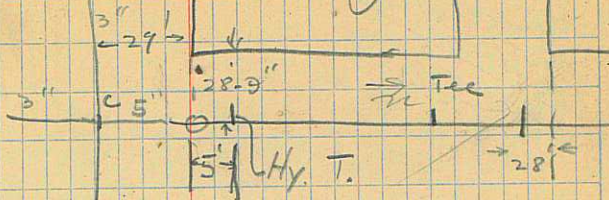 3"
29'
28-9"
Tee
3" C 5"
5' Hy. T.
28'